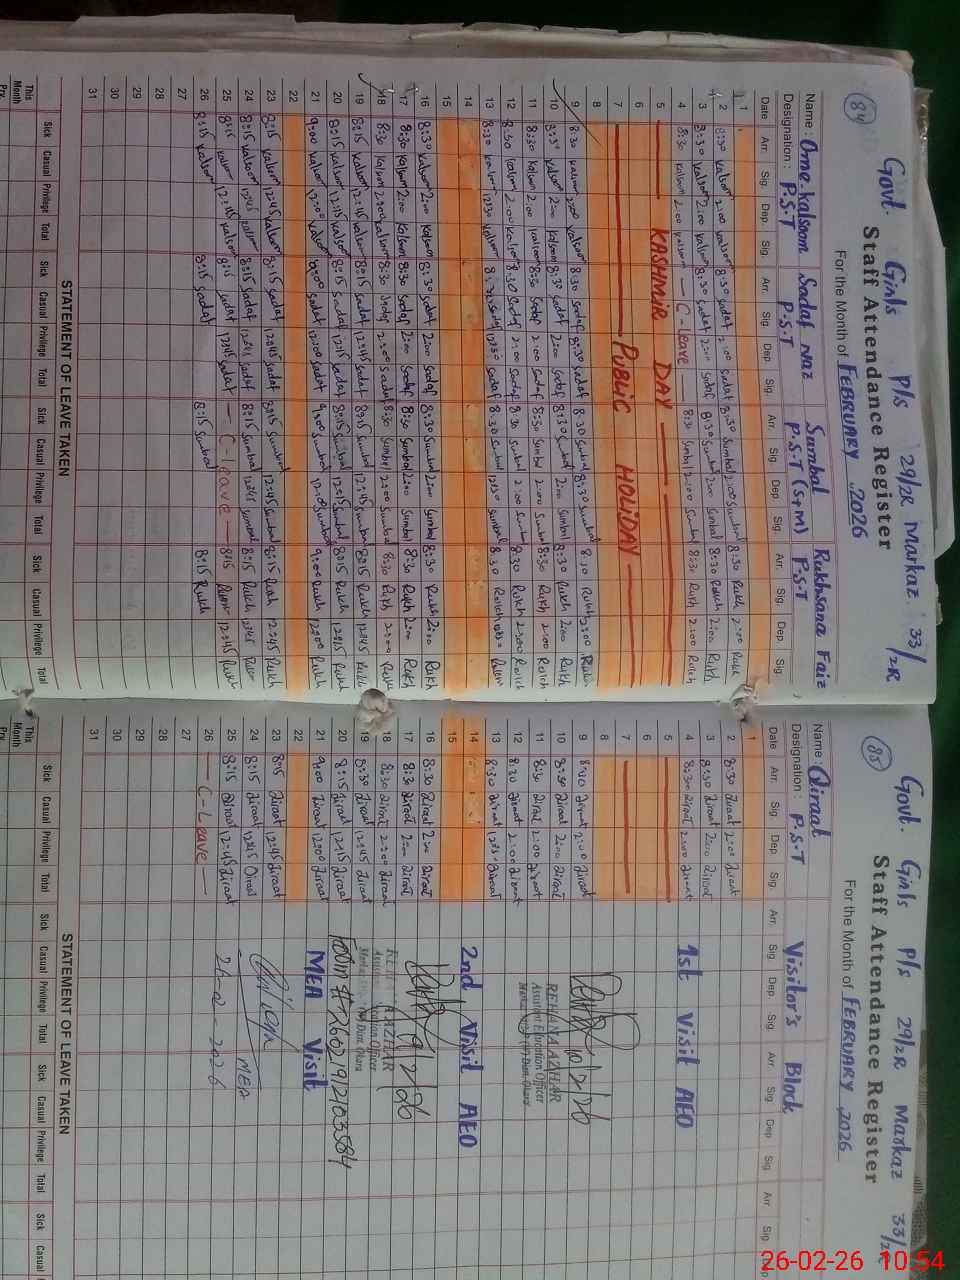 84
Govt. Girls P/s 29/2R Markaz 33/2R
Staff Attendance Register
For the Month of FEBRUARY 2026
Name : Ome.kalsoom Sadaf Naz Sumbal Rukhsana Faiz
Designation : P.S.T P.S.T P.S.T (S+M) P.S.T
Date Arr. Sig. Dep. Sig. Arr. Sig. Dep. Sig. Arr. Sig. Dep. Sig. Arr. Sig. Dep. Sig.
1
2 8:30 kalsoom 2:00 kalsoom 8:30 Sadaf 2:00 Sadaf 8:30 Sumbal 2:00 Sumbal 8:30 Rukh 2:00 Rukh
3 8:30 kalsoom 2:00 kalsoom 8:30 Sadaf 2:00 Sadaf 8:30 Sumbal 2:00 Sumbal 8:30 Rukh 2:00 Rukh
4 8:30 kalsoom 2:00 kalsoom C-Leave 8:30 Sumbal 2:00 Sumbal 8:30 Rukh 2:00 Rukh
5 KASHMIR DAY
6
7 PUBLIC HOLIDAY
8
9 8:30 kalsoom 2:00 kalsoom 8:30 Sadaf 8:30 Sadaf 8:30 Sumbal 8:30 Sumbal 8:30 Rukh 2:00 Rukh
10 8:30 kalsoom 2:00 kalsoom 8:30 Sadaf 2:00 Sadaf 8:30 Sumbal 2:00 Sumbal 8:30 Rukh 2:00 Rukh
11 8:30 kalsoom 2:00 kalsoom 8:30 Sadaf 2:00 Sadaf 8:30 Sumbal 2:00 Sumbal 8:30 Rukh 2:00 Rukh
12 8:30 kalsoom 2:00 kalsoom 8:30 Sadaf 2:00 Sadaf 8:30 Sumbal 2:00 Sumbal 8:30 Rukh 2:00 Rukh
13 8:30 kalsoom 12:30 kalsoom 8:30 Sadaf 12:30 Sadaf 8:30 Sumbal 12:30 Sumbal 8:30 Rukh 12:30 Rukh
14
15
16 8:30 kalsoom 2:00 kalsoom 8:30 Sadaf 2:00 Sadaf 8:30 Sumbal 2:00 Sumbal 8:30 Rukh 2:00 Rukh
17 8:30 kalsoom 2:00 kalsoom 8:30 Sadaf 2:00 Sadaf 8:30 Sumbal 2:00 Sumbal 8:30 Rukh 2:00 Rukh
18 8:30 kalsoom 2:00 kalsoom 8:30 Sadaf 2:00 Sadaf 8:30 Sumbal 2:00 Sumbal 8:30 Rukh 2:00 Rukh
19 8:15 kalsoom 12:45 kalsoom 8:15 Sadaf 12:45 Sadaf 8:15 Sumbal 12:45 Sumbal 8:15 Rukh 12:45 Rukh
20 8:15 kalsoom 12:15 kalsoom 8:15 Sadaf 12:15 Sadaf 8:15 Sumbal 12:15 Sumbal 8:15 Rukh 12:15 Rukh
21 9:00 kalsoom 12:00 kalsoom 9:00 Sadaf 12:00 Sadaf 9:00 Sumbal 12:00 Sumbal 9:00 Rukh 12:00 Rukh
22
23 8:15 kalsoom 12:45 kalsoom 8:15 Sadaf 12:45 Sadaf 8:15 Sumbal 12:45 Sumbal 8:15 Rukh 12:45 Rukh
24 8:15 kalsoom 12:45 kalsoom 8:15 Sadaf 12:45 Sadaf 8:15 Sumbal 12:45 Sumbal 8:15 Rukh 12:45 Rukh
25 8:15 kalsoom 12:45 kalsoom 8:15 Sadaf 12:45 Sadaf C-Leave 8:15 Rukh 12:45 Rukh
26 8:15 kalsoom 8:15 Sadaf 8:15 Sumbal 8:15 Rukh
27
28
29
30
31
STATEMENT OF LEAVE TAKEN
Sick Casual Privilege Total Sick Casual Privilege Total Sick Casual Privilege Total Sick Casual Privilege Total
This Month
Prv.
85
Govt. Girls P/s 29/2R Markaz 33/2R
Staff Attendance Register
For the Month of FEBRUARY 2026
Name : Qiraat Visitor's Block
Designation : P.S.T
Date Arr. Sig. Dep. Sig. Arr. Sig. Dep. Sig. Arr. Sig. Dep. Sig. Arr. Sig.
1
2 8:30 Qiraat 2:00 Qiraat
3 8:30 Qiraat 2:00 Qiraat
4 8:30 Qiraat 2:00 Qiraat 1st Visit AEO
5
6
7
8
9 8:30 Qiraat 2:00 Qiraat 10/2/26
10 8:30 Qiraat 2:00 Qiraat REHANA AZHAR
11 8:30 Qiraat 2:00 Qiraat Assistant Education Officer
12 8:30 Qiraat 2:00 Qiraat
13 8:30 Qiraat 12:30 Qiraat
14 2nd Visit AEO
15
16 8:30 Qiraat 2:00 Qiraat
17 8:30 Qiraat 2:00 Qiraat
18 8:30 Qiraat 2:00 Qiraat AZHAR
19 8:30 Qiraat 12:45 Qiraat
20 8:15 Qiraat 12:15 Qiraat
21 9:00 Qiraat 12:00 Qiraat MEA Visit
22
23 8:15 Qiraat 12:45 Qiraat
24 8:15 Qiraat 12:45 Qiraat MEA
25 8:15 Qiraat 12:45 Qiraat 26-02-2026
26 C-Leave
27
28
29
30
31
STATEMENT OF LEAVE TAKEN
Sick Casual Privilege Total Sick Casual Privilege Total Sick Casual Privilege Total Sick Casual
This Month
Prv.
26-02-26 10:54